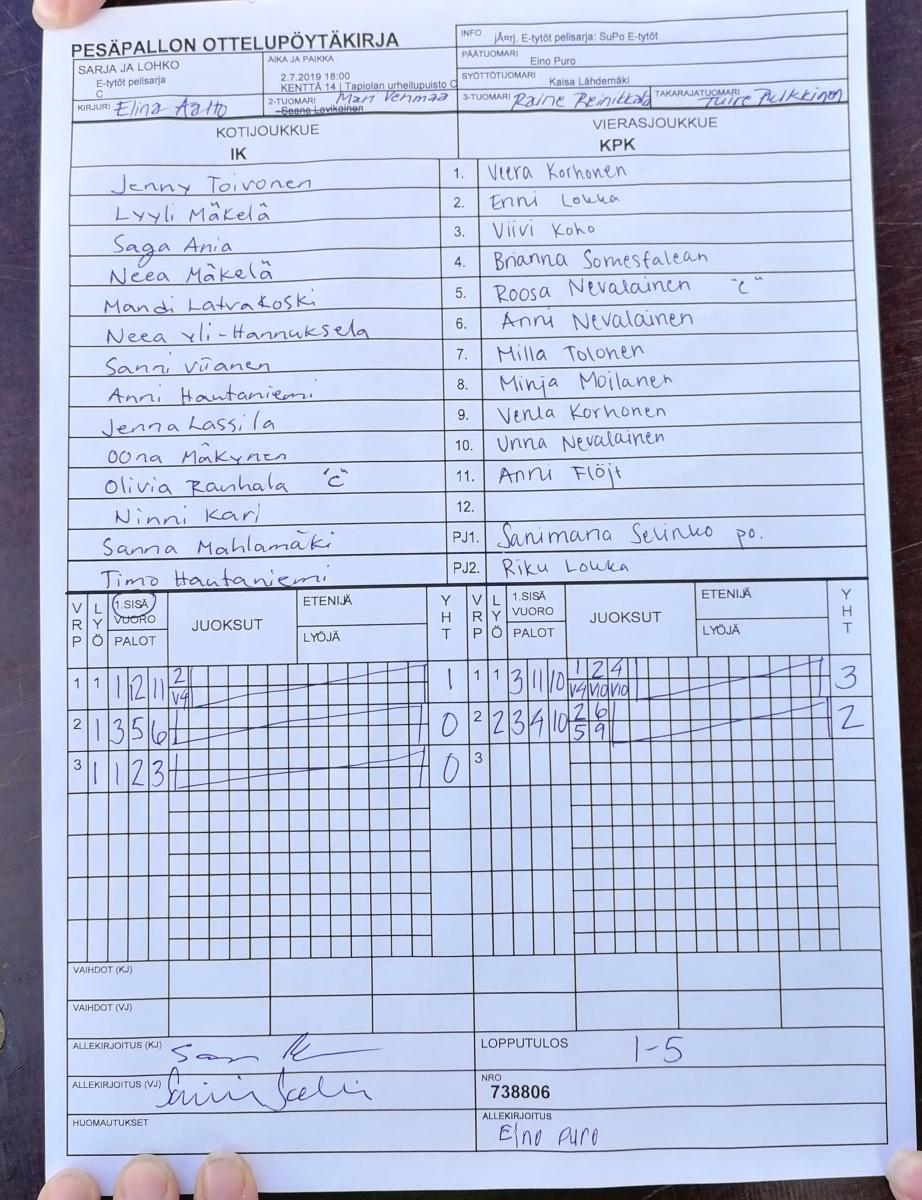 PESÄPALLON OTTELUPÖYTÄKIRJA
INFO jÃ¤rj. E-tytöt pelisarja: SuPo E-tytöt
SARJA JA LOHKO
E-tytöt pelisarja
C
AIKA JA PAIKKA
2.7.2019 18:00
KENTTÄ 14 | Tapiolan urheilupuisto C
PÄÄTUOMARI Eino Puro
SYÖTTÖTUOMARI Kaisa Lähdemäki
KIRJURI Elina Aalto
2-TUOMARI Mari Vehmaa
3-TUOMARI Raine Reinikkala
TAKARAJATUOMARI Tuire Pulkkinen
KOTIJOUKKUE VIERASJOUKKUE
IK KPK
Jenny Toivonen 1. Veera Korhonen
Lyyli Mäkelä 2. Enni Loukа
Saga Ania 3. Viivi Koho
Neea Mäkelä 4. Brianna Somesfalean
Mandi Latvakoski 5. Roosa Nevalainen "C"
Neea Yli-Hannuksela 6. Anni Nevalainen
Sanni Viianen 7. Milla Tolonen
Anni Hautaniemi 8. Minja Moilanen
Jenna Lassila 9. Venla Korhonen
Oona Mäkynen 10. Unna Nevalainen
Olivia Rauhala "C" 11. Anni Flöjt
Ninni Kari 12.
Sanna Mahlamäki PJ1. Sanimaria Selinko po.
Timo Hautaniemi PJ2. Riku Louka
VRP LYÖ 1.SISÄ VUORO PALOT JUOKSUT ETENIJÄ LYÖJÄ YHT VRP LYÖ 1.SISÄ VUORO PALOT JUOKSUT ETENIJÄ LYÖJÄ YHT
1 1 1 12 11 2 1 1 1 3 11 10 1 2 4 3
V4 V4 V10 V10
2 1 3 5 6 0 2 2 3 4 10 2 6 2
5 9
3 1 1 2 3 0 3
VAIHDOT (KJ)
VAIHDOT (VJ)
ALLEKIRJOITUS (KJ)
LOPPUTULOS 1-5
ALLEKIRJOITUS (VJ)
NRO
738806
HUOMAUTUKSET
ALLEKIRJOITUS
Eino Puro